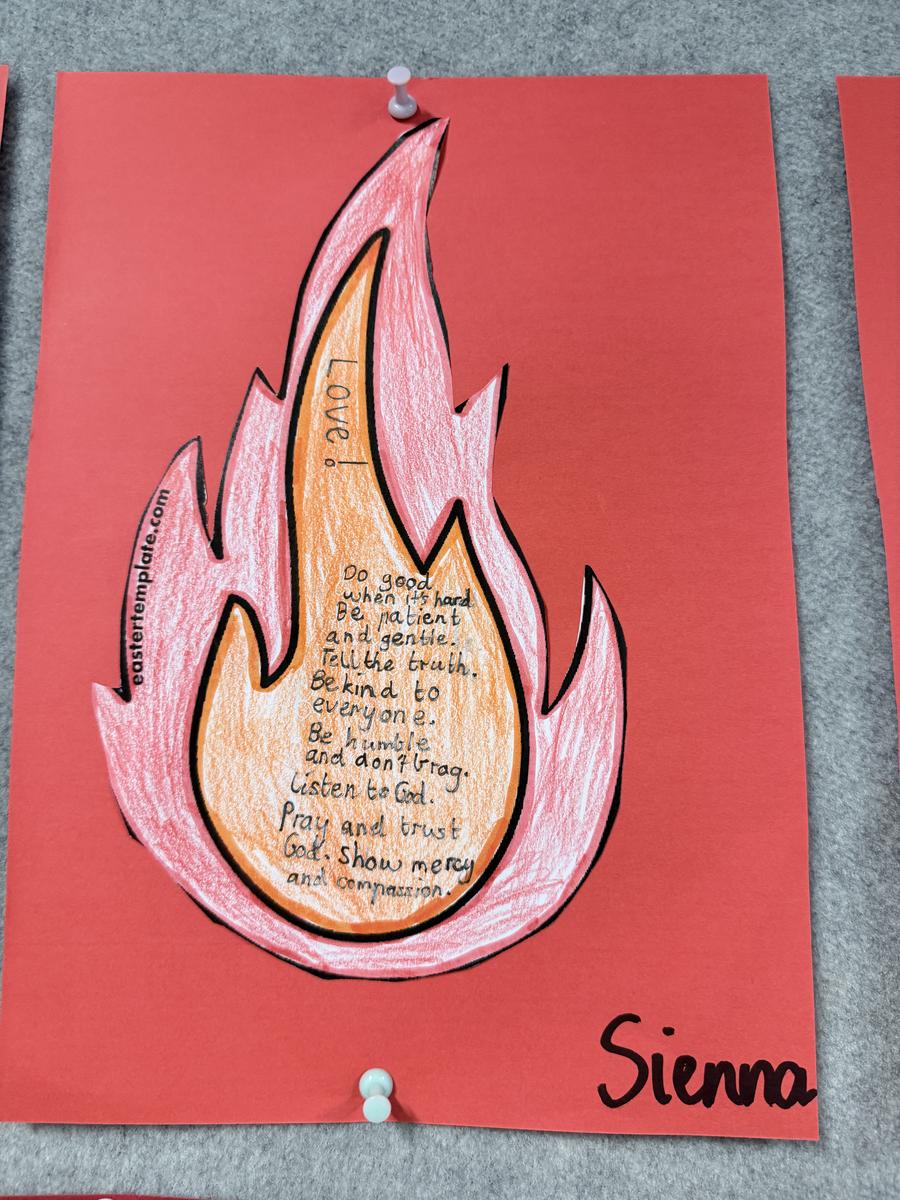 Love!
eastertemplate.com
Do good
when it's hard
Be patient
and gentle.
Tell the truth.
Be kind to
everyone.
Be humble
and don't brag.
Listen to God.
Pray and trust
God. Show mercy
and compassion.
Sienna